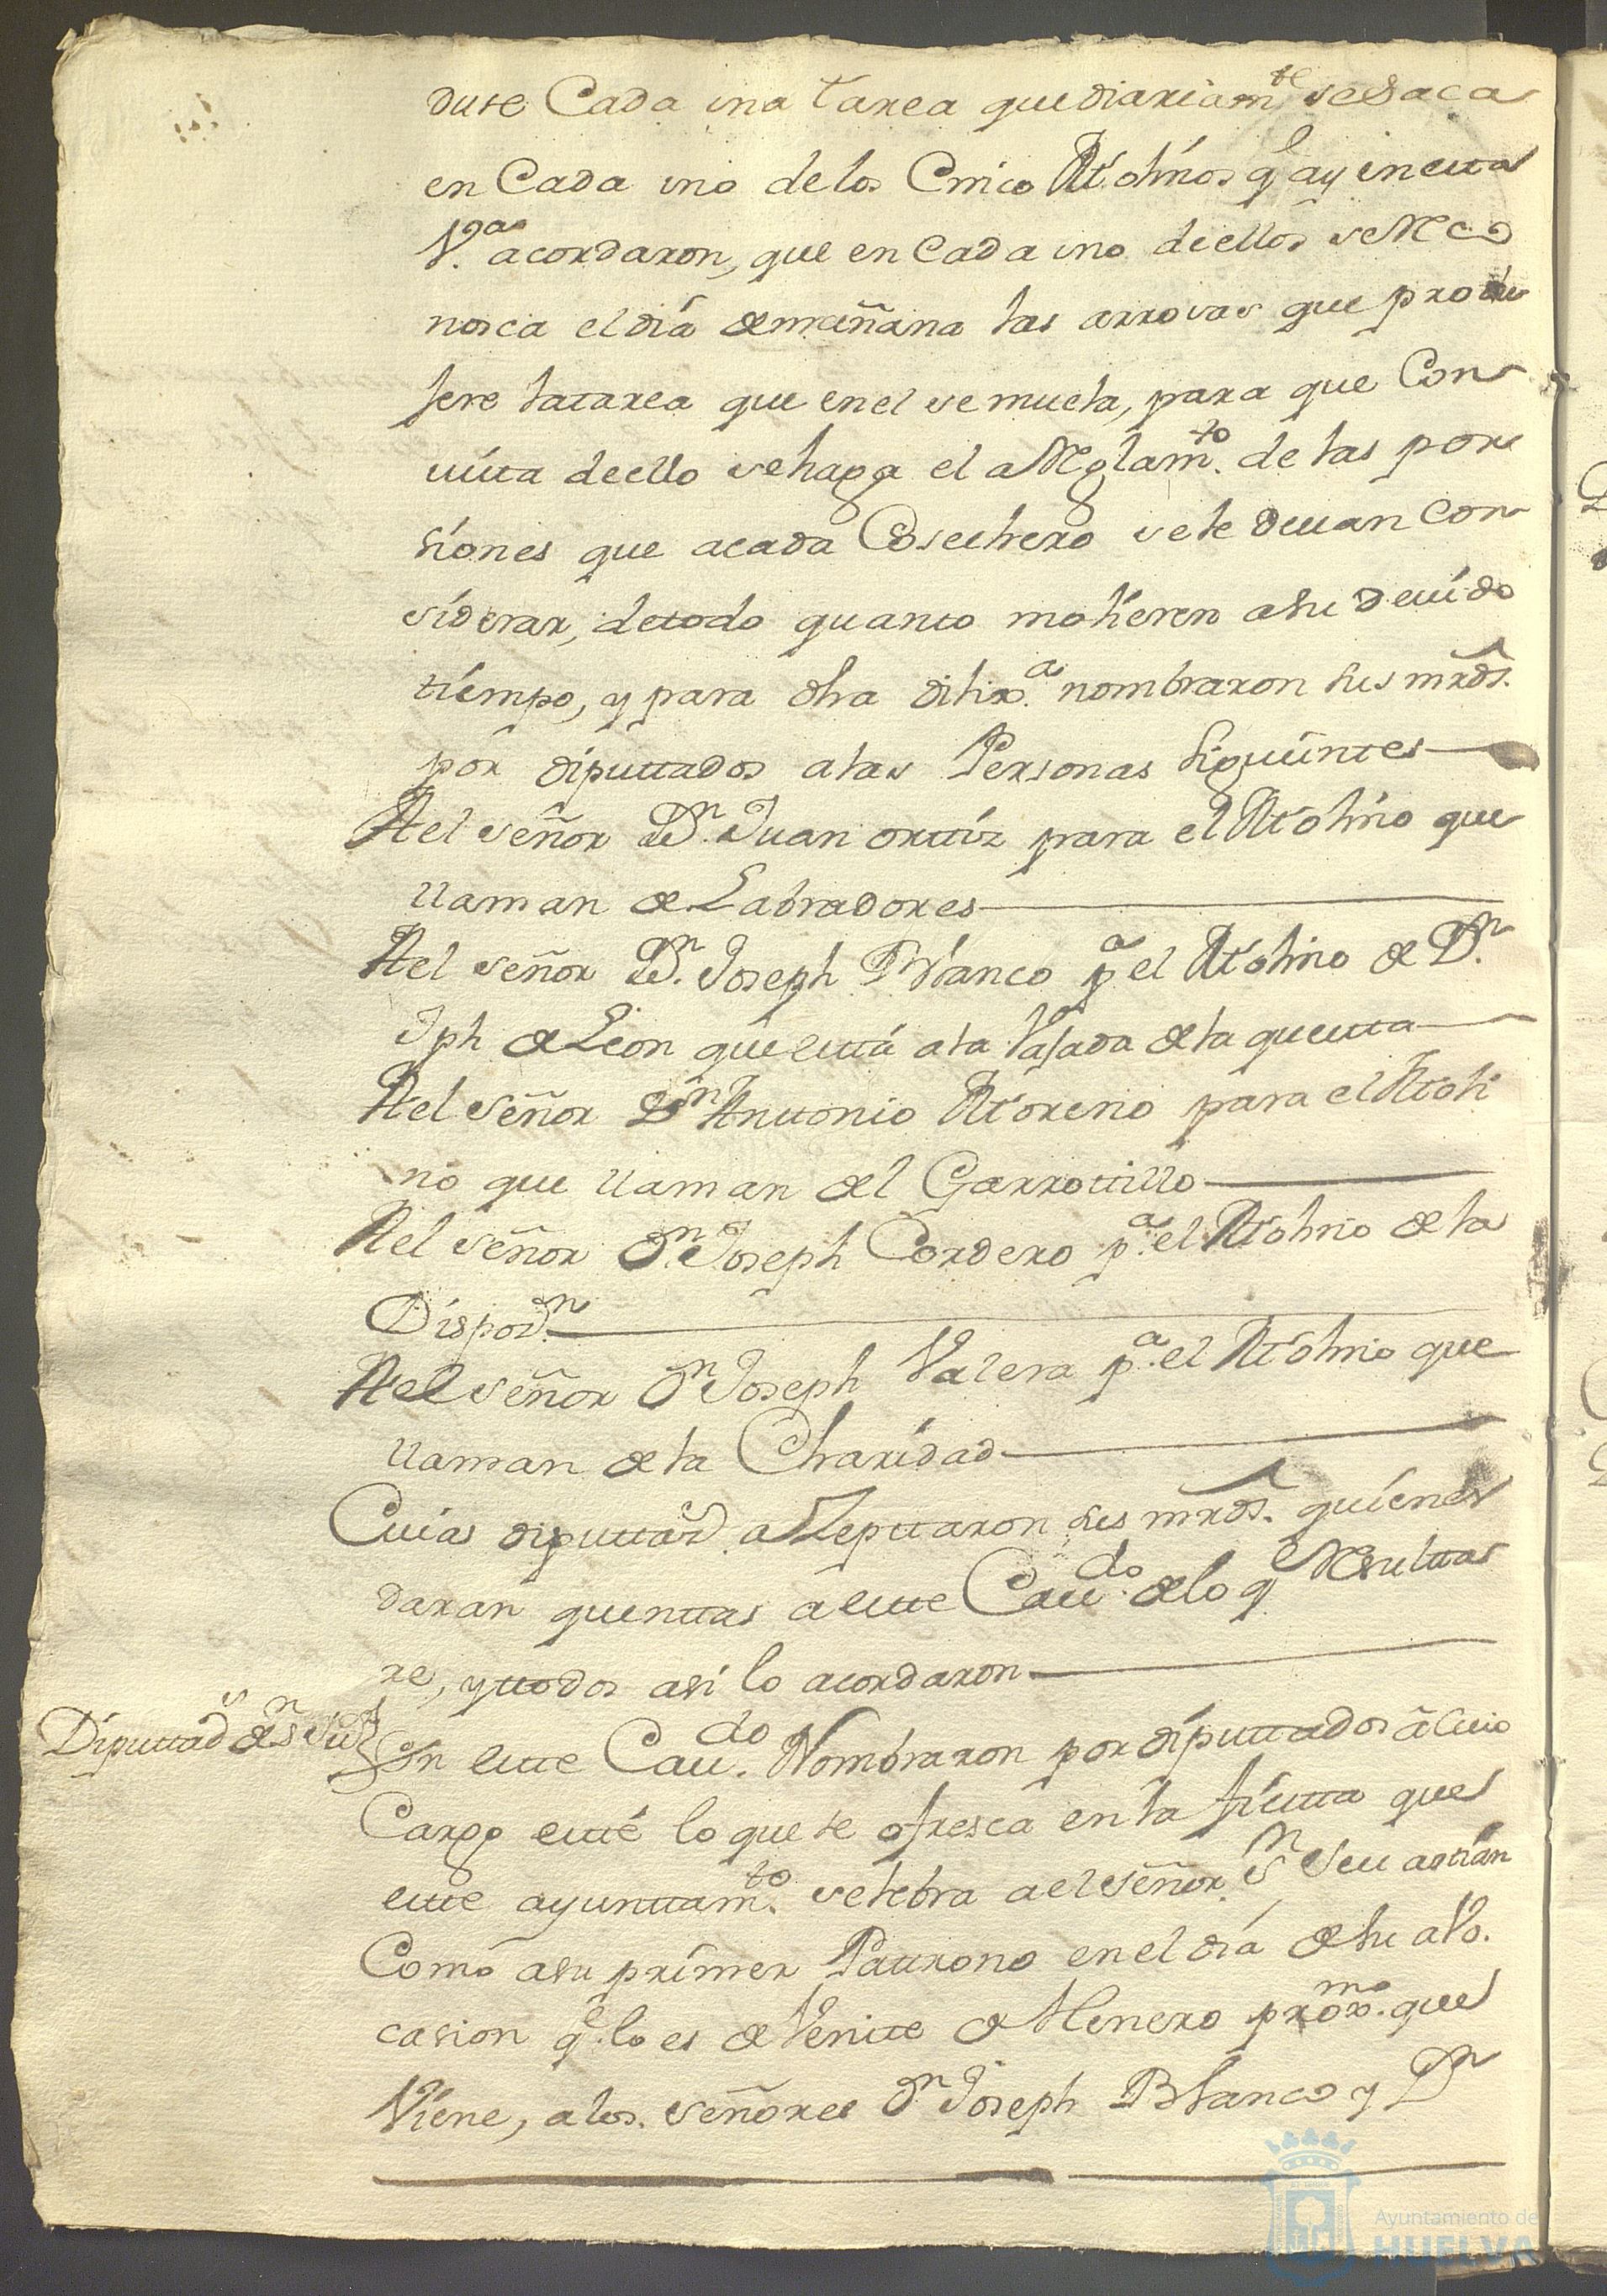 duse Cada una tarea que diariam.te se saca
en Cada uno de los Cinco Molinos q.e ay en esta
V.a acordaron, que en Cada uno de ellos se Reco
nosca el dia de mañana las arrovas que produ
sere la tarea que en el se muela, para que Con
vista de ello se haga el arreglam.to de las por
siones que a cada Cosechero se le devan con
siderar, de todo quanto molieren a su devido
tiempo, y para dha dilix.a nombraron sus mrds.
por diputtados a las Personas siguientes
A el señor D.n Juan orttiz para el Molino que
llaman de Labradores
A el señor D.n Joseph Blanco p.a el Molino de D.n
Jph de Leon que estta a la Vajada de la questta
A el señor D.n Anttonio Moreno para el Moli
no que llaman del Garrottillo
A el señor D.n Joseph Cordero p.a el Molino de la
Disposi.n
A el señor D.n Joseph Valera p.a el Molino que
llaman de la Charidad
Cuias diputtad.s azepttaron sus mrds. quienes
daran quenttas a estte Cav.do de lo q.e Resulttas
re, y ttodos asi lo acordaron
Diputtad.s de S.n Sn
En estte Cav.do Nombraron por diputtados a Cuio
Cargo estté lo que se ofresca en la fiestta que
estte ayunttam.to selebra a el señor S.n Sevastian
Como a su primer Pattrono en el dia de su abo.
casion q.e lo es Veintte de Henero prox.mo que
Viene, a los señores D.n Joseph Blanco y D.n
Ayuntamiento de
HUELVA